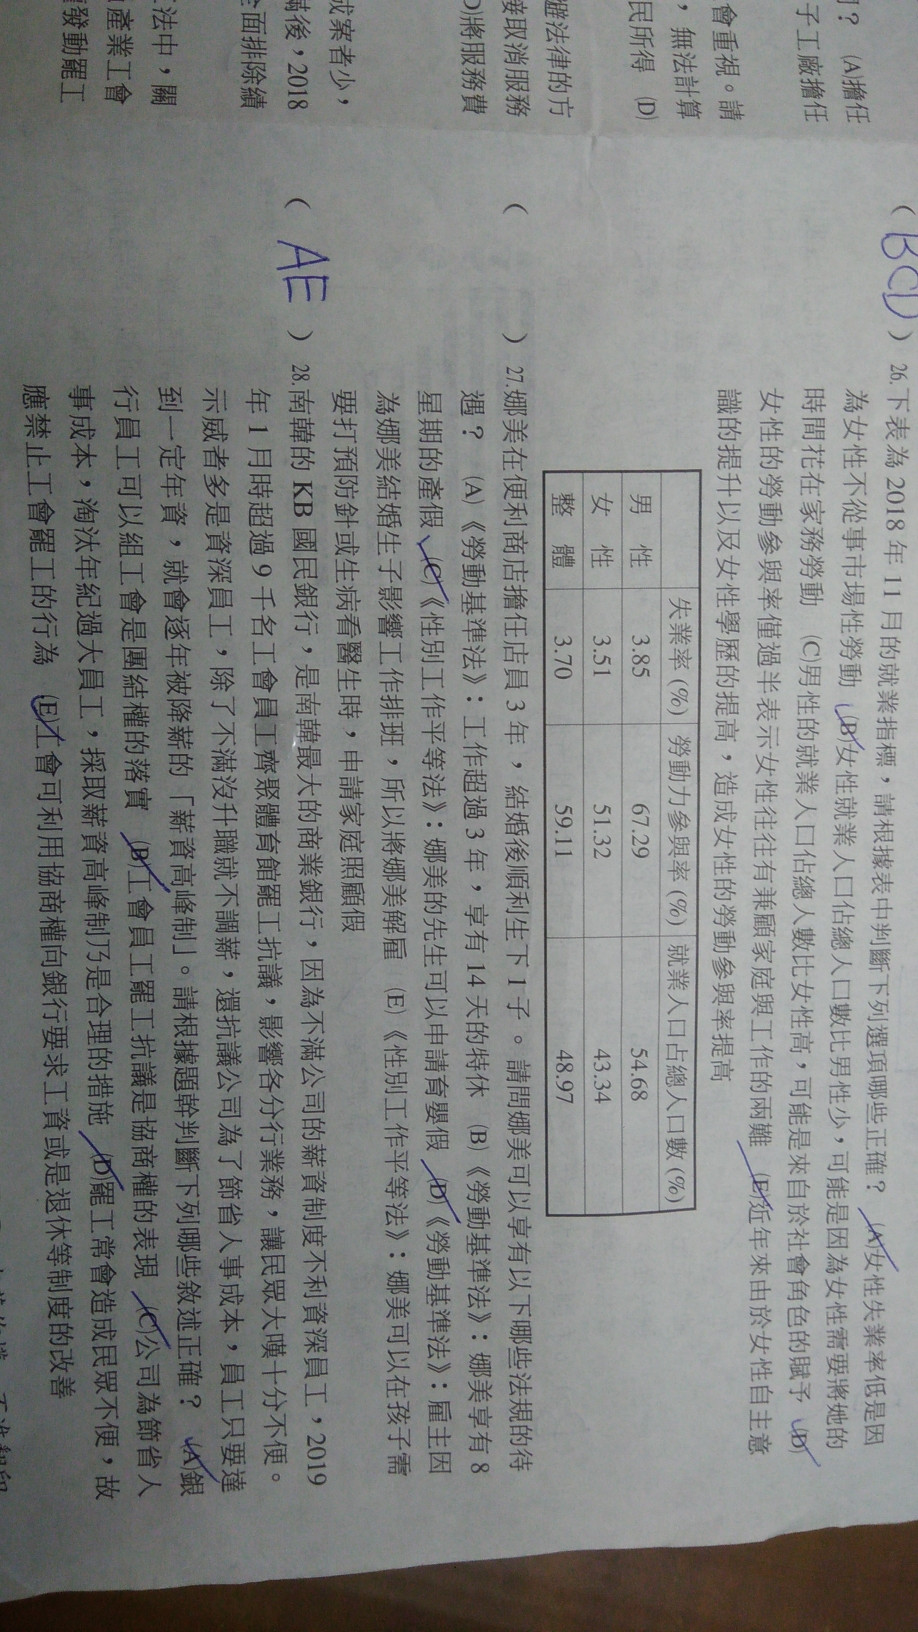 (BCD) 26.下表為 2018 年 11 月的就業指標，請根據表中判斷下列選項哪些正確？ (A)女性失業率低是因
為女性不從事市場性勞動 (B)女性就業人口佔總人口數比男性少，可能是因為女性需要將她的
時間花在家務勞動 (C)男性的就業人口佔總人數比女性高，可能是來自於社會角色的賦予 (D)
女性的勞動參與率僅過半表示女性往往有兼顧家庭與工作的兩難 (E)近年來由於女性自主意
識的提升以及女性學歷的提高，造成女性的勞動參與率提高
失業率(%) 勞動力參與率(%) 就業人口占總人口數(%)
男 性 3.85 67.29 54.68
女 性 3.51 51.32 43.34
整 體 3.70 59.11 48.97
( ) 27.娜美在便利商店擔任店員 3 年，結婚後順利生下 1 子。請問娜美可以享有以下哪些法規的待
遇？ (A)《勞動基準法》：工作超過 3 年，享有 14 天的特休 (B)《勞動基準法》：娜美享有 8
星期的產假 (C)《性別工作平等法》：娜美的先生可以申請育嬰假 (D)《勞動基準法》：雇主因
為娜美結婚生子影響工作排班，所以將娜美解雇 (E)《性別工作平等法》：娜美可以在孩子需
要打預防針或生病看醫生時，申請家庭照顧假
(AE) 28.南韓的 KB 國民銀行，是南韓最大的商業銀行，因為不滿公司的薪資制度不利資深員工，2019
年 1 月時超過 9 千名工會員工齊聚體育館罷工抗議，影響各分行業務，讓民眾大嘆十分不便。
示威者多是資深員工，除了不滿沒升職就不調薪，還抗議公司為了節省人事成本，員工只要達
到一定年資，就會逐年被降薪的「薪資高峰制」。請根據題幹判斷下列哪些敘述正確？ (A)銀
行員工可以組工會是團結權的落實 (B)工會員工罷工抗議是協商權的表現 (C)公司為節省人
事成本，淘汰年紀過大員工，採取薪資高峰制乃是合理的措施 (D)罷工常會造成民眾不便，故
應禁止工會罷工的行為 (E)工會可利用協商權向銀行要求工資或是退休等制度的改善
？ (A)擔任
子工廠擔任
會重視。請
，無法計算
民所得 (D)
避法律的方
接取消服務
D)將服務費
成案者少，
滿後，2018
全面排除績
法中，關
產業工會
發動罷工